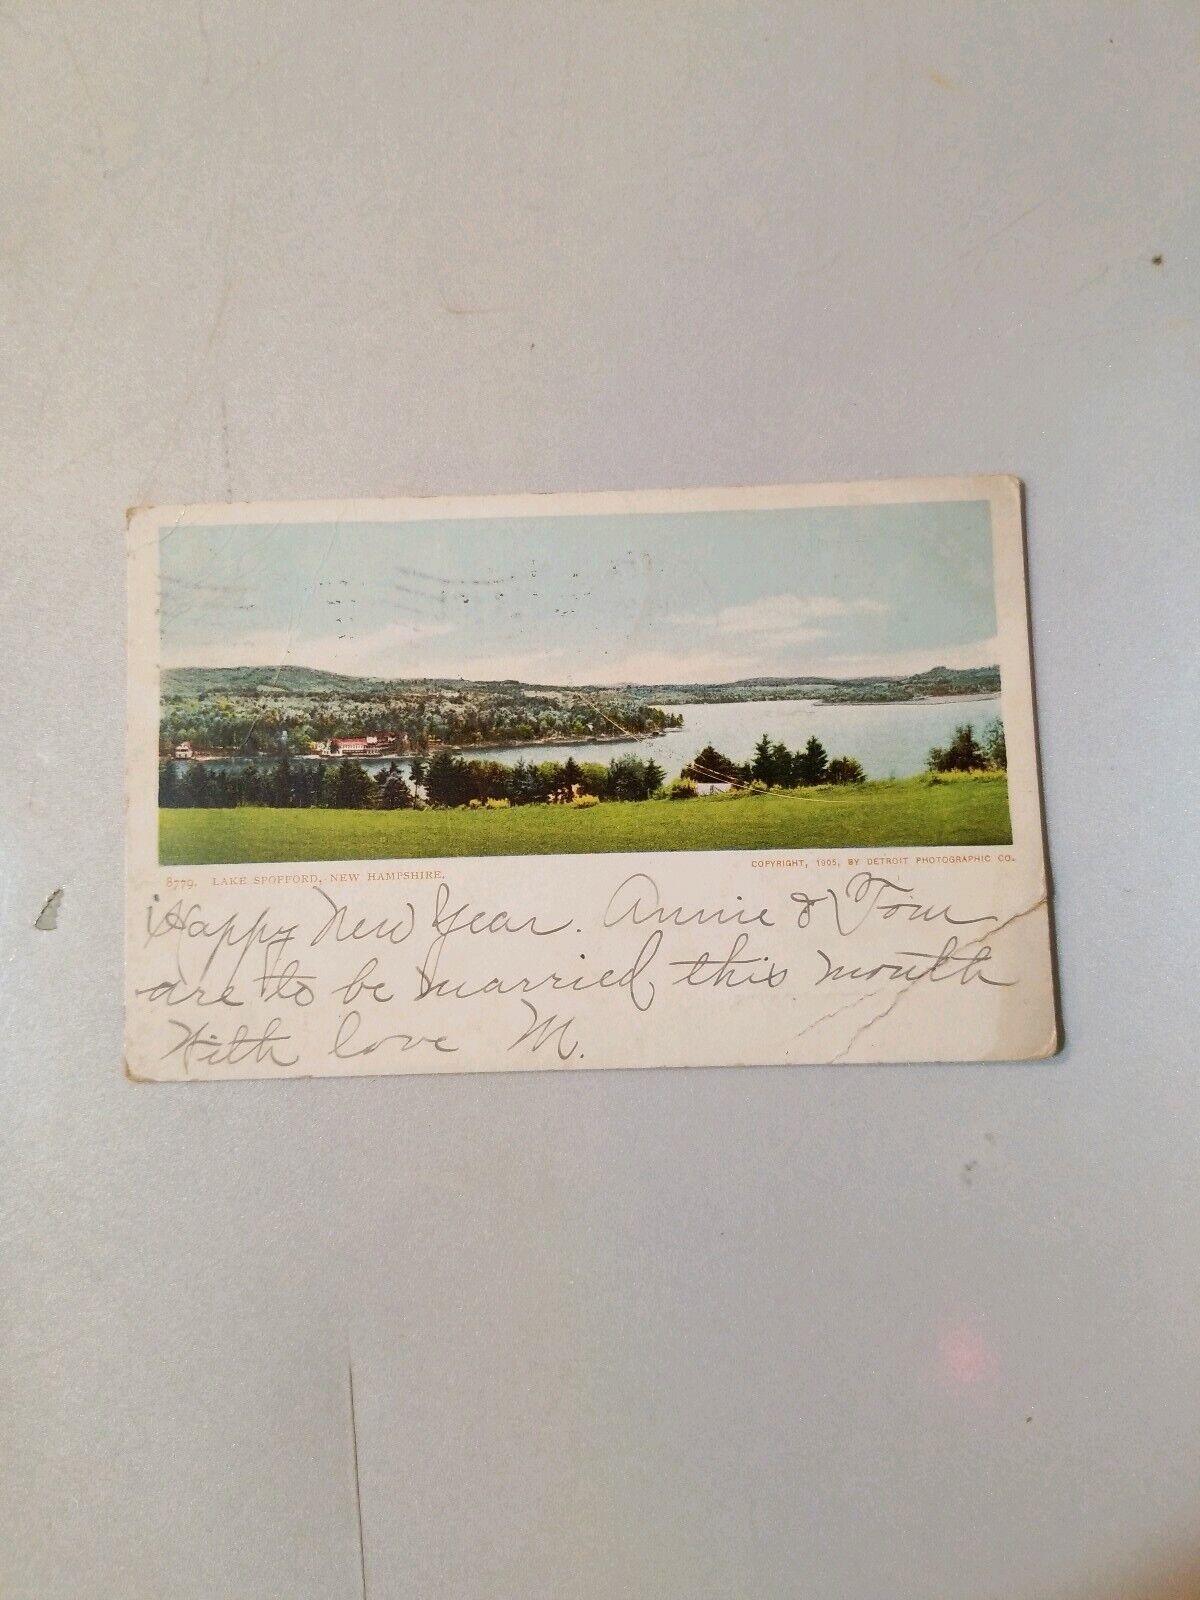 COPYRIGHT, 1905, BY DETROIT PHOTOGRAPHIC CO.
8779. LAKE SPOFFORD, NEW HAMPSHIRE.
Happy New Year. Annie & Tom
are to be married this month
With love M.